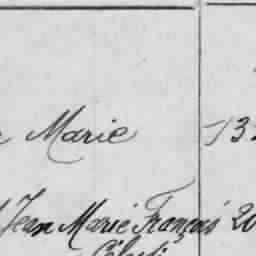 Marie 13
Jean Marie François 20
Célesti